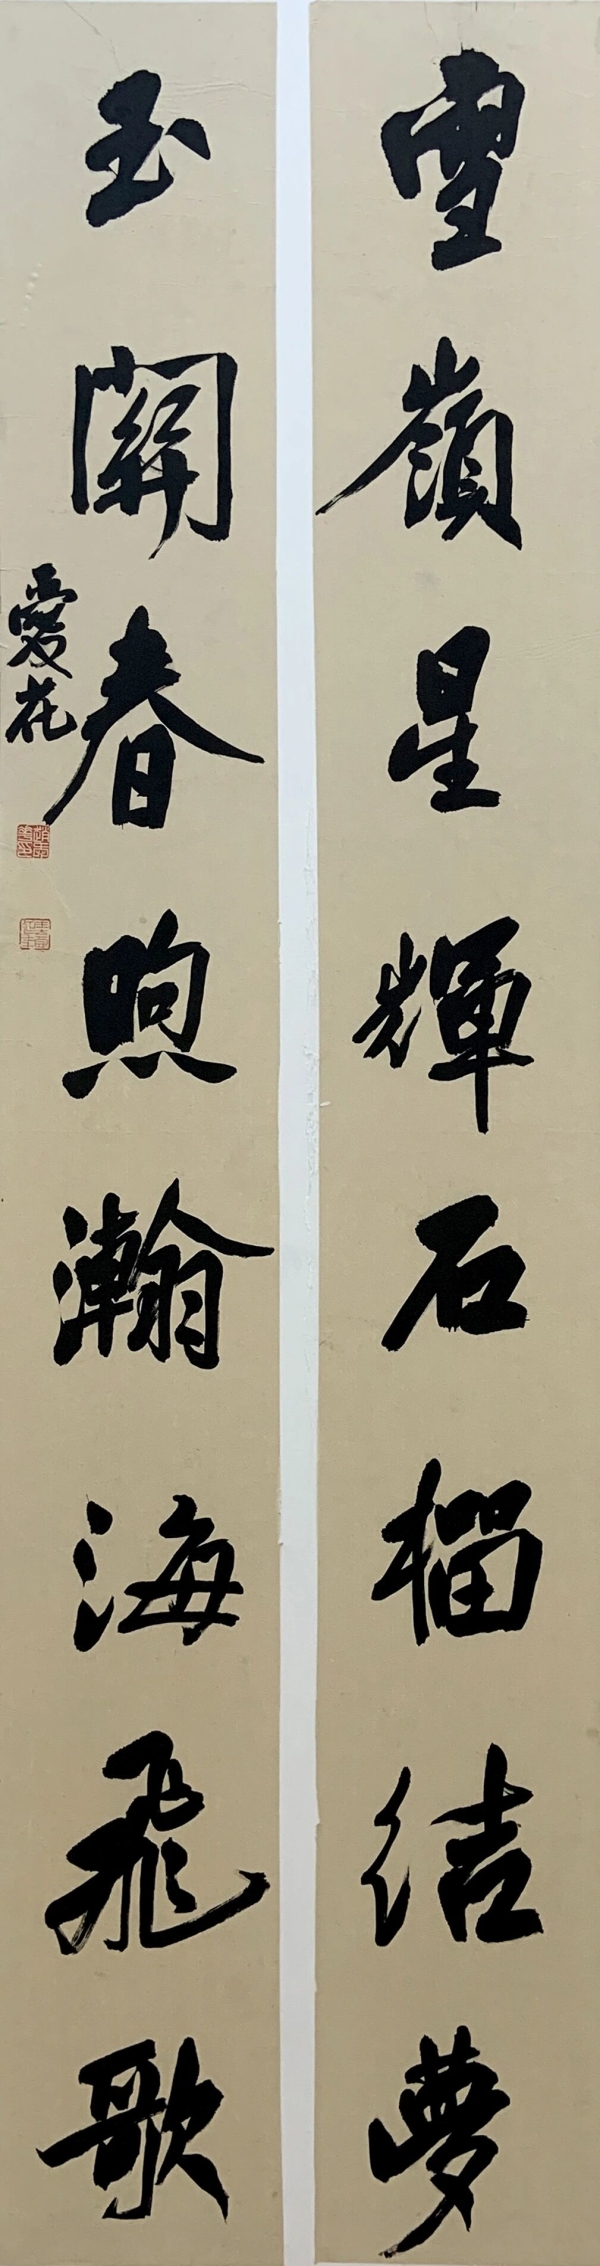 雪嶺星輝石榴結夢
玉關春煦瀚海飛歌
愛花